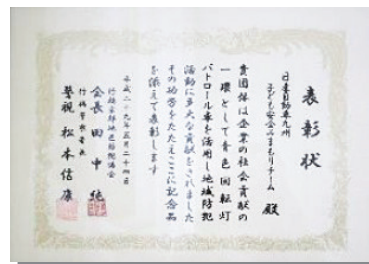 表彰状
日産自動車九州
子ども安全みまもりチーム 殿
貴団体は企業の社会貢献の
一環として青色回転灯
パトロール車を活用し地域防犯
活動に多大な貢献をされました
その功労をたたえここに記念品
を添えて表彰します
平成二十九年三月二十四日
行橋京都地区防犯協会
会長 田中 純
行橋警察署長
警視 松本信康